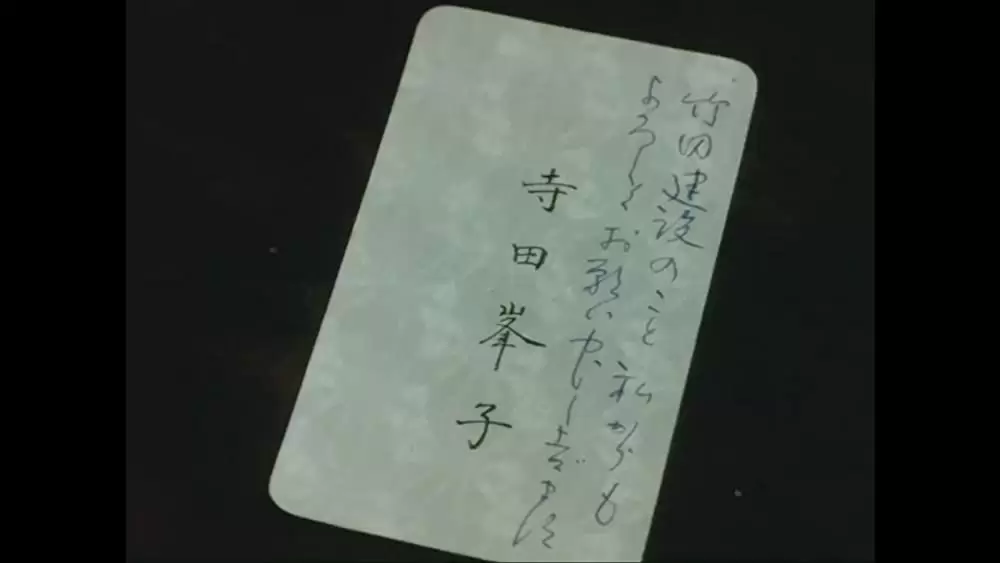 竹田建設のこと私からも
よろしくお願い申し上げます
寺田峯子